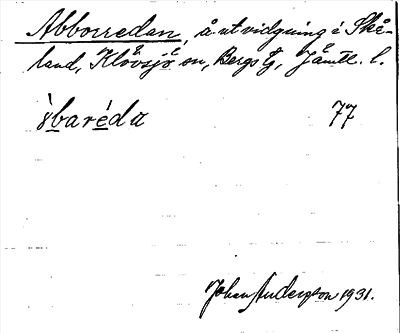 Abborredan, å utvidgning i Skå-
land, Klövsjö sn, Bergs tg, Jämtl. l.
ẁbaréda 77
Johan Anderson 1931.